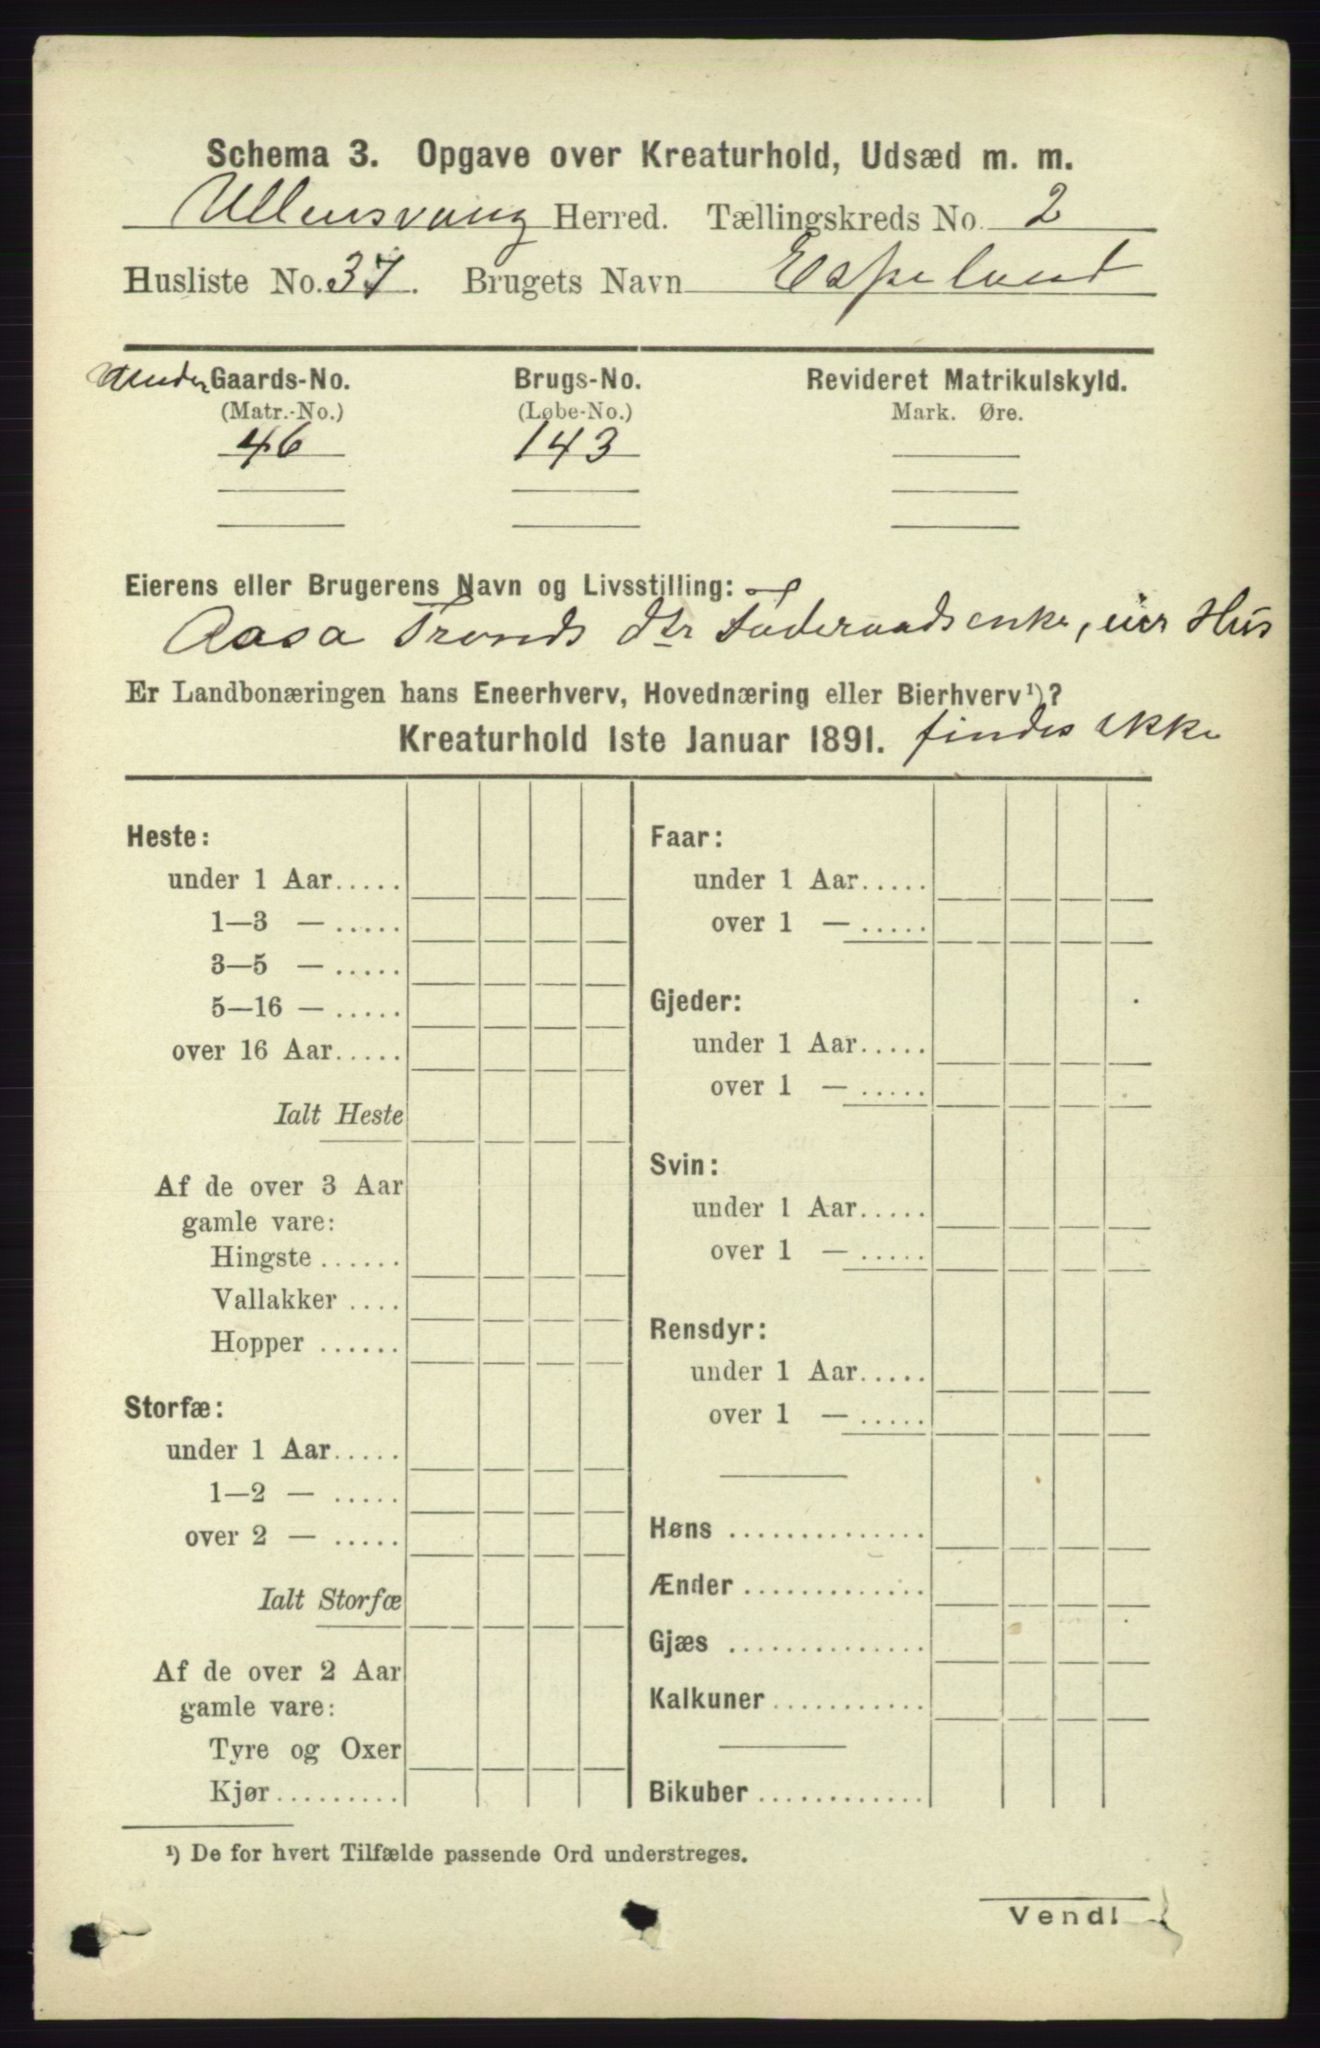 Schema 3. Opgave over Kreaturhold, Udsæd m. m.
Ullensvang Herred. Tællingskreds No. 2
Husliste No. 37. Brugets Navn Espeland
Under Gaards-No. Brugs-No. Revideret Matrikulskyld.
(Matr.-No.) (Løbe-No.) Mark. Øre.
46 143
Eierens eller Brugerens Navn og Livsstilling:
Aasa Tronds dtr Föderaadsenke, eier Hus
Er Landbonæringen hans Eneerhverv, Hovednæring eller Bierhverv¹)?
Kreaturhold 1ste Januar 1891. findes ikke
Heste:
under 1 Aar.....
1—3 — .....
3—5 — .....
5—16 — .....
over 16 Aar.....
Ialt Heste
Af de over 3 Aar
gamle vare:
Hingste ......
Vallakker ....
Hopper ......
Storfæ:
under 1 Aar.....
1—2 — .....
over 2 — .....
Ialt Storfæ
Af de over 2 Aar
gamle vare:
Tyre og Oxer
Kjør.........
Faar:
under 1 Aar.....
over 1 — .....
Gjeder:
under 1 Aar.....
over 1 — .....
Svin:
under 1 Aar.....
over 1 — .....
Rensdyr:
under 1 Aar.....
over 1 — .....
Høns ..............
Ænder .............
Gjæs ..............
Kalkuner ...........
Bikuber ............
¹) De for hvert Tilfælde passende Ord understreges.
Vend!